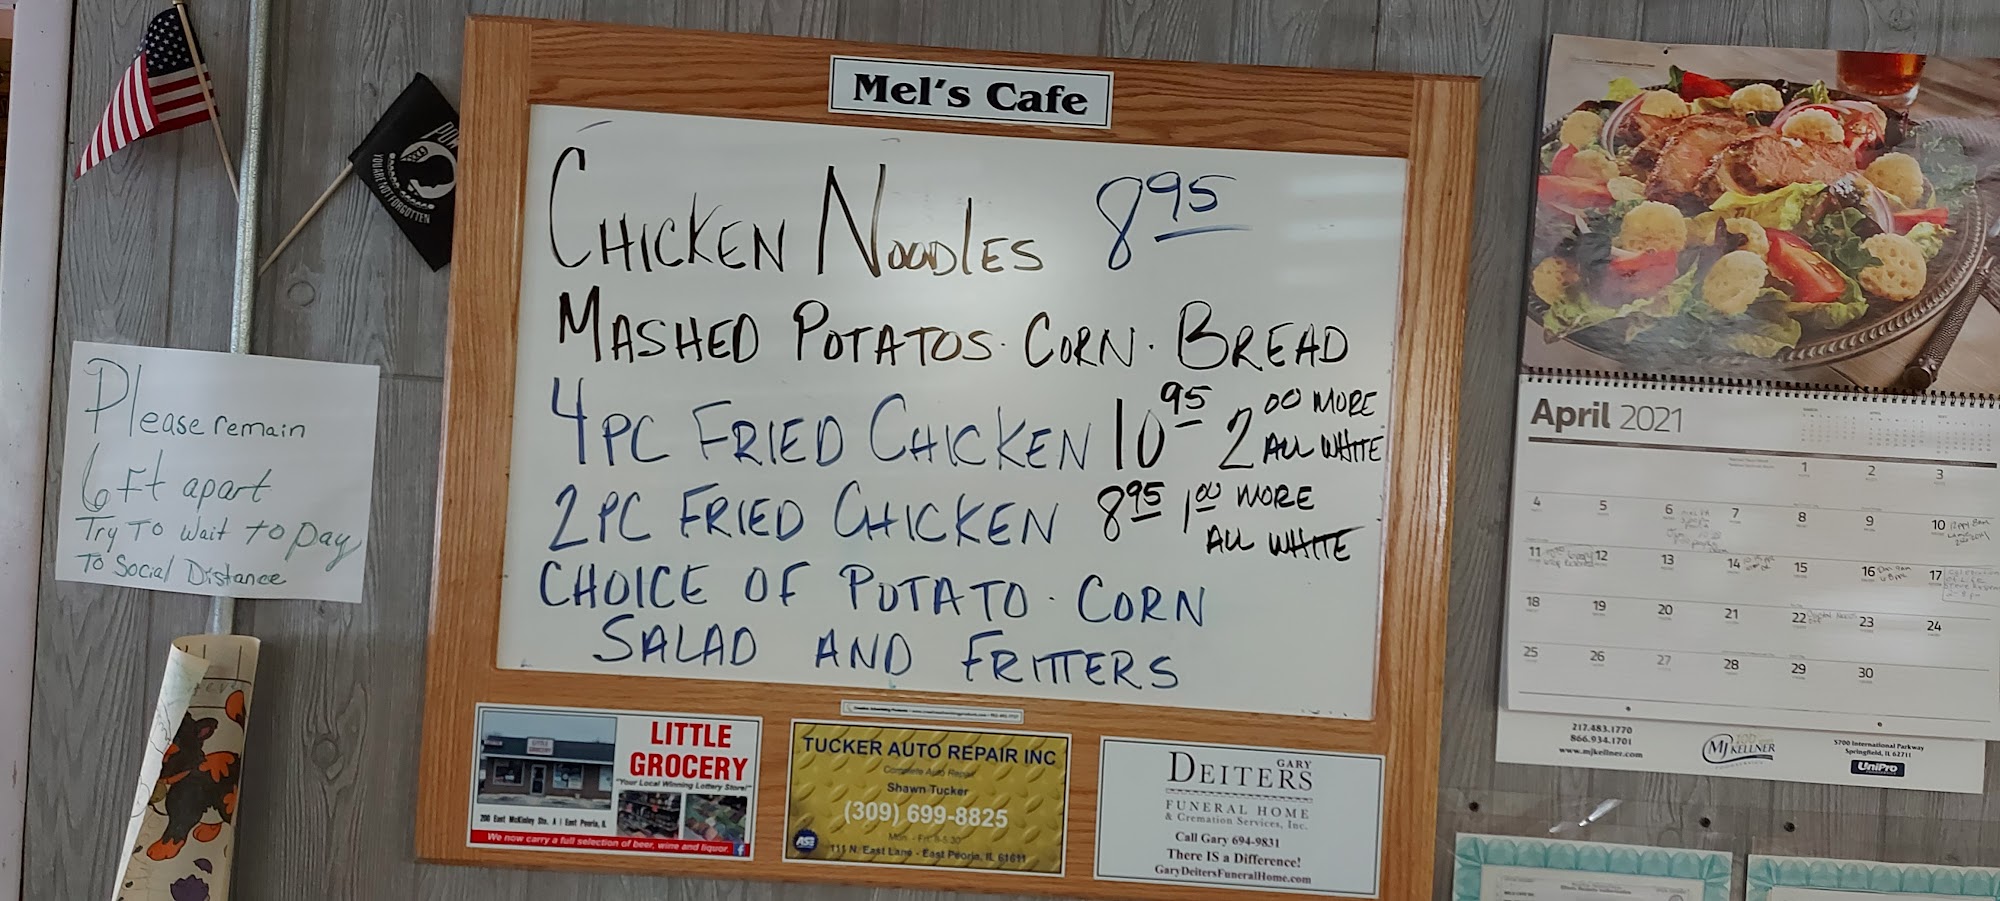 POW
YOU ARE NOT FORGOTTEN
Please remain
6 Ft apart
Try To Wait to pay
To Social Distance
Mel's Cafe
CHICKEN NOODLES 8 95
MASHED POTATOS · CORN · BREAD
4 PC FRIED CHICKEN 10 95 2 00 MORE
ALL WHITE
2 PC FRIED CHICKEN 8 95 1 00 MORE
ALL WHITE
CHOICE OF POTATO · CORN
SALAD AND FRITTERS
LITTLE
GROCERY
"Your Local Winning Lottery Store!"
200 East McKinley Ste. A | East Peoria, IL
We now carry a full selection of beer, wine and liquor.
TUCKER AUTO REPAIR INC
Complete Auto Repair
Shawn Tucker
(309) 699-8825
Mon. - Fri. 8-5:30
111 N. East Lane - East Peoria, IL 61611
GARY
DEITERS
FUNERAL HOME
& Cremation Services, Inc.
Call Gary 694-9831
There IS a Difference!
GaryDeitersFuneralHome.com
April 2021
1 2 3
4 5 6 7 8 9 10
11 12 13 14 15 16 17
18 19 20 21 22 23 24
25 26 27 28 29 30
217.483.1770
866.934.1701
www.mjkellner.com
MJKELLNER
5700 International Parkway
Springfield, IL 62711
UniPro